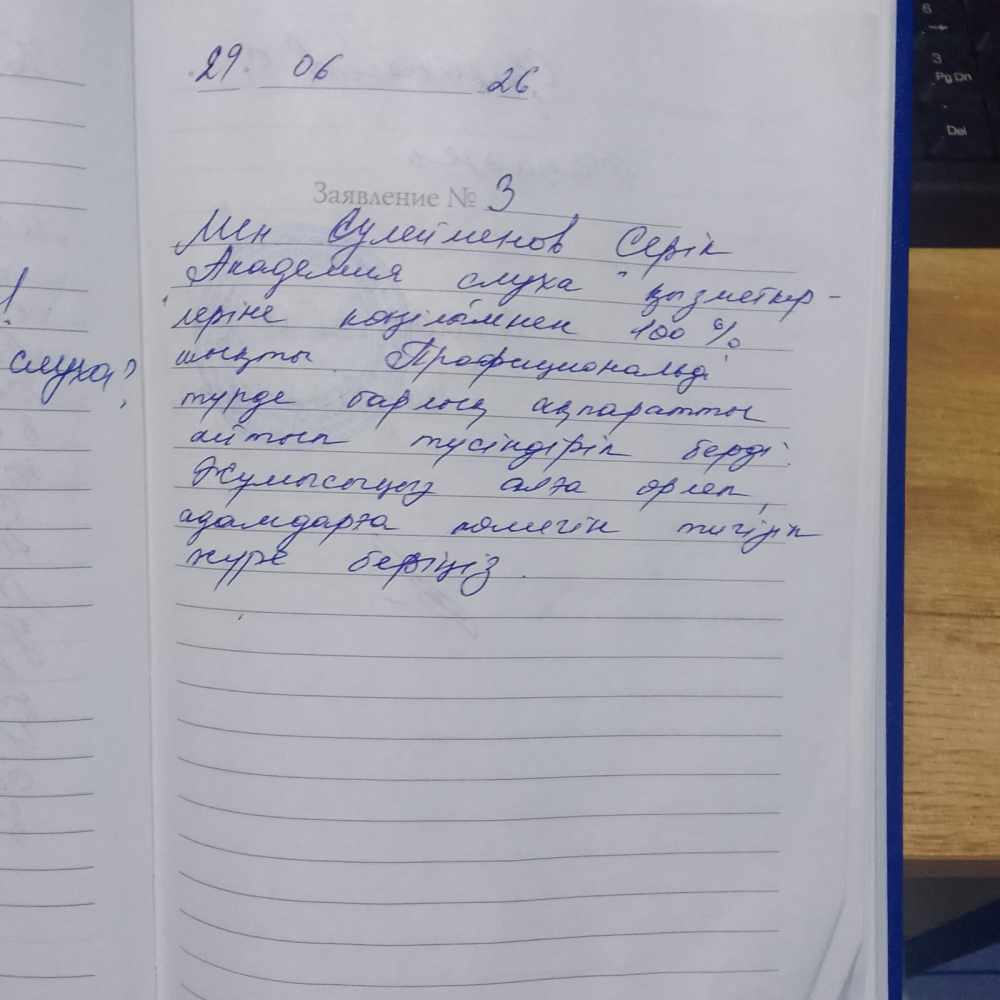 29. 06 26.
Заявление № 3
Мен Сулейменов Серік
"Академия слуха" қызметкер-
леріне көңілімнен 100 %
шықты. Профициональді
түрде барлық ақпаратты
айтып түсіндіріп берді.
Жұмысыңыз алға өрлеп,
адамдарға көмегін тигізіп
жүре беріңіз.
слуха?
6
3
Pg Dn
Del